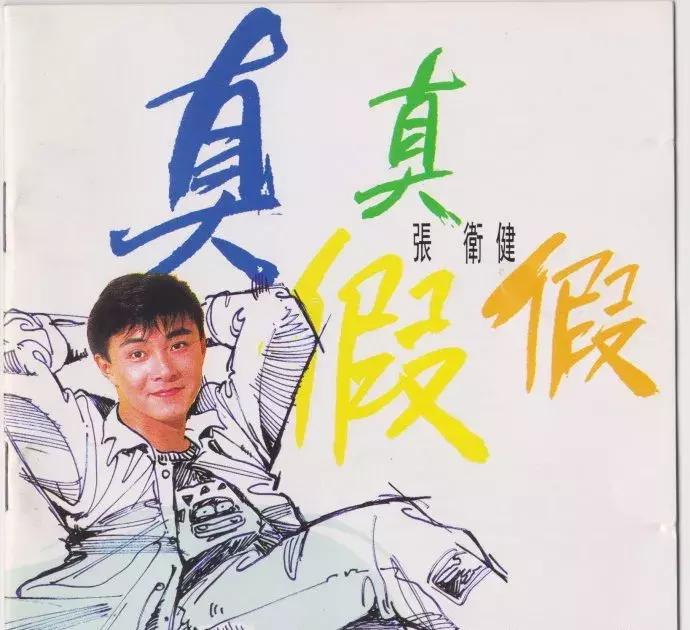 真真
張衛健
假假